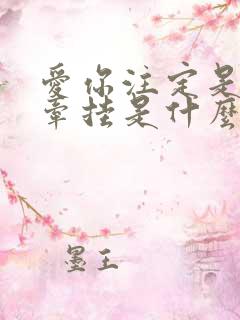 愛你注定是
牽挂是什麼
墨王